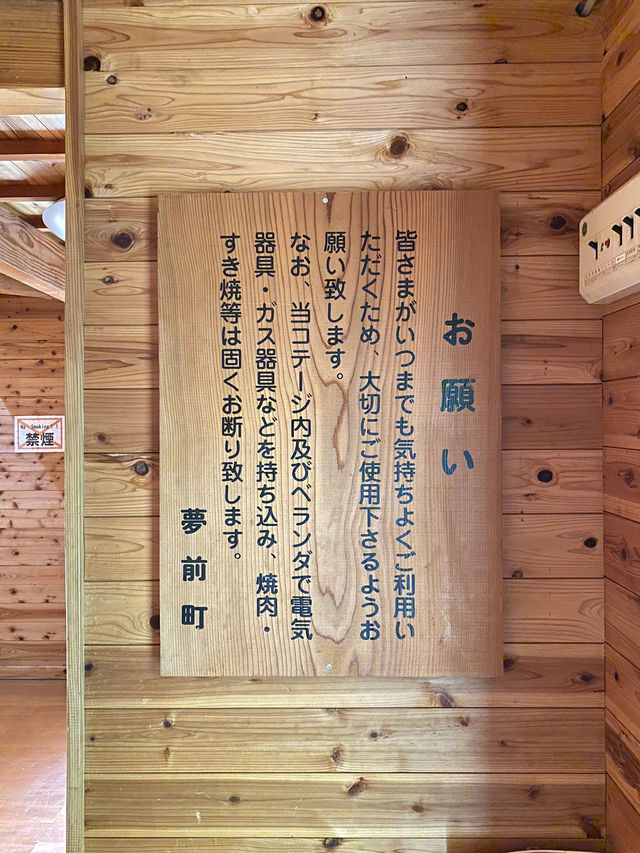 お願い
皆さまがいつまでも気持ちよくご利用い
ただくため、大切にご使用下さるようお
願い致します。
なお、当コテージ内及びベランダで電気
器具・ガス器具などを持ち込み、焼肉・
すき焼等は固くお断り致します。
夢前町
No Smoking!!
禁煙